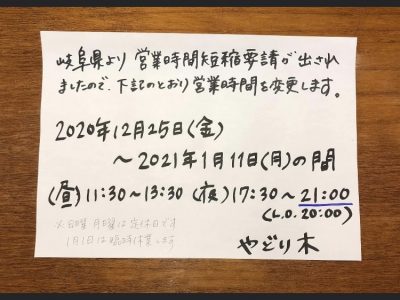 岐阜県より営業時間短縮要請が出され
ましたので、下記のとおり営業時間を変更します。
2020年12月25日(金)
～2021年1月11日(月)の間
(昼)11:30～13:30 (夜)17:30～21:00
(L.O. 20:00)
※日曜月曜は定休日です
1月1日は臨時休業します
やどり木